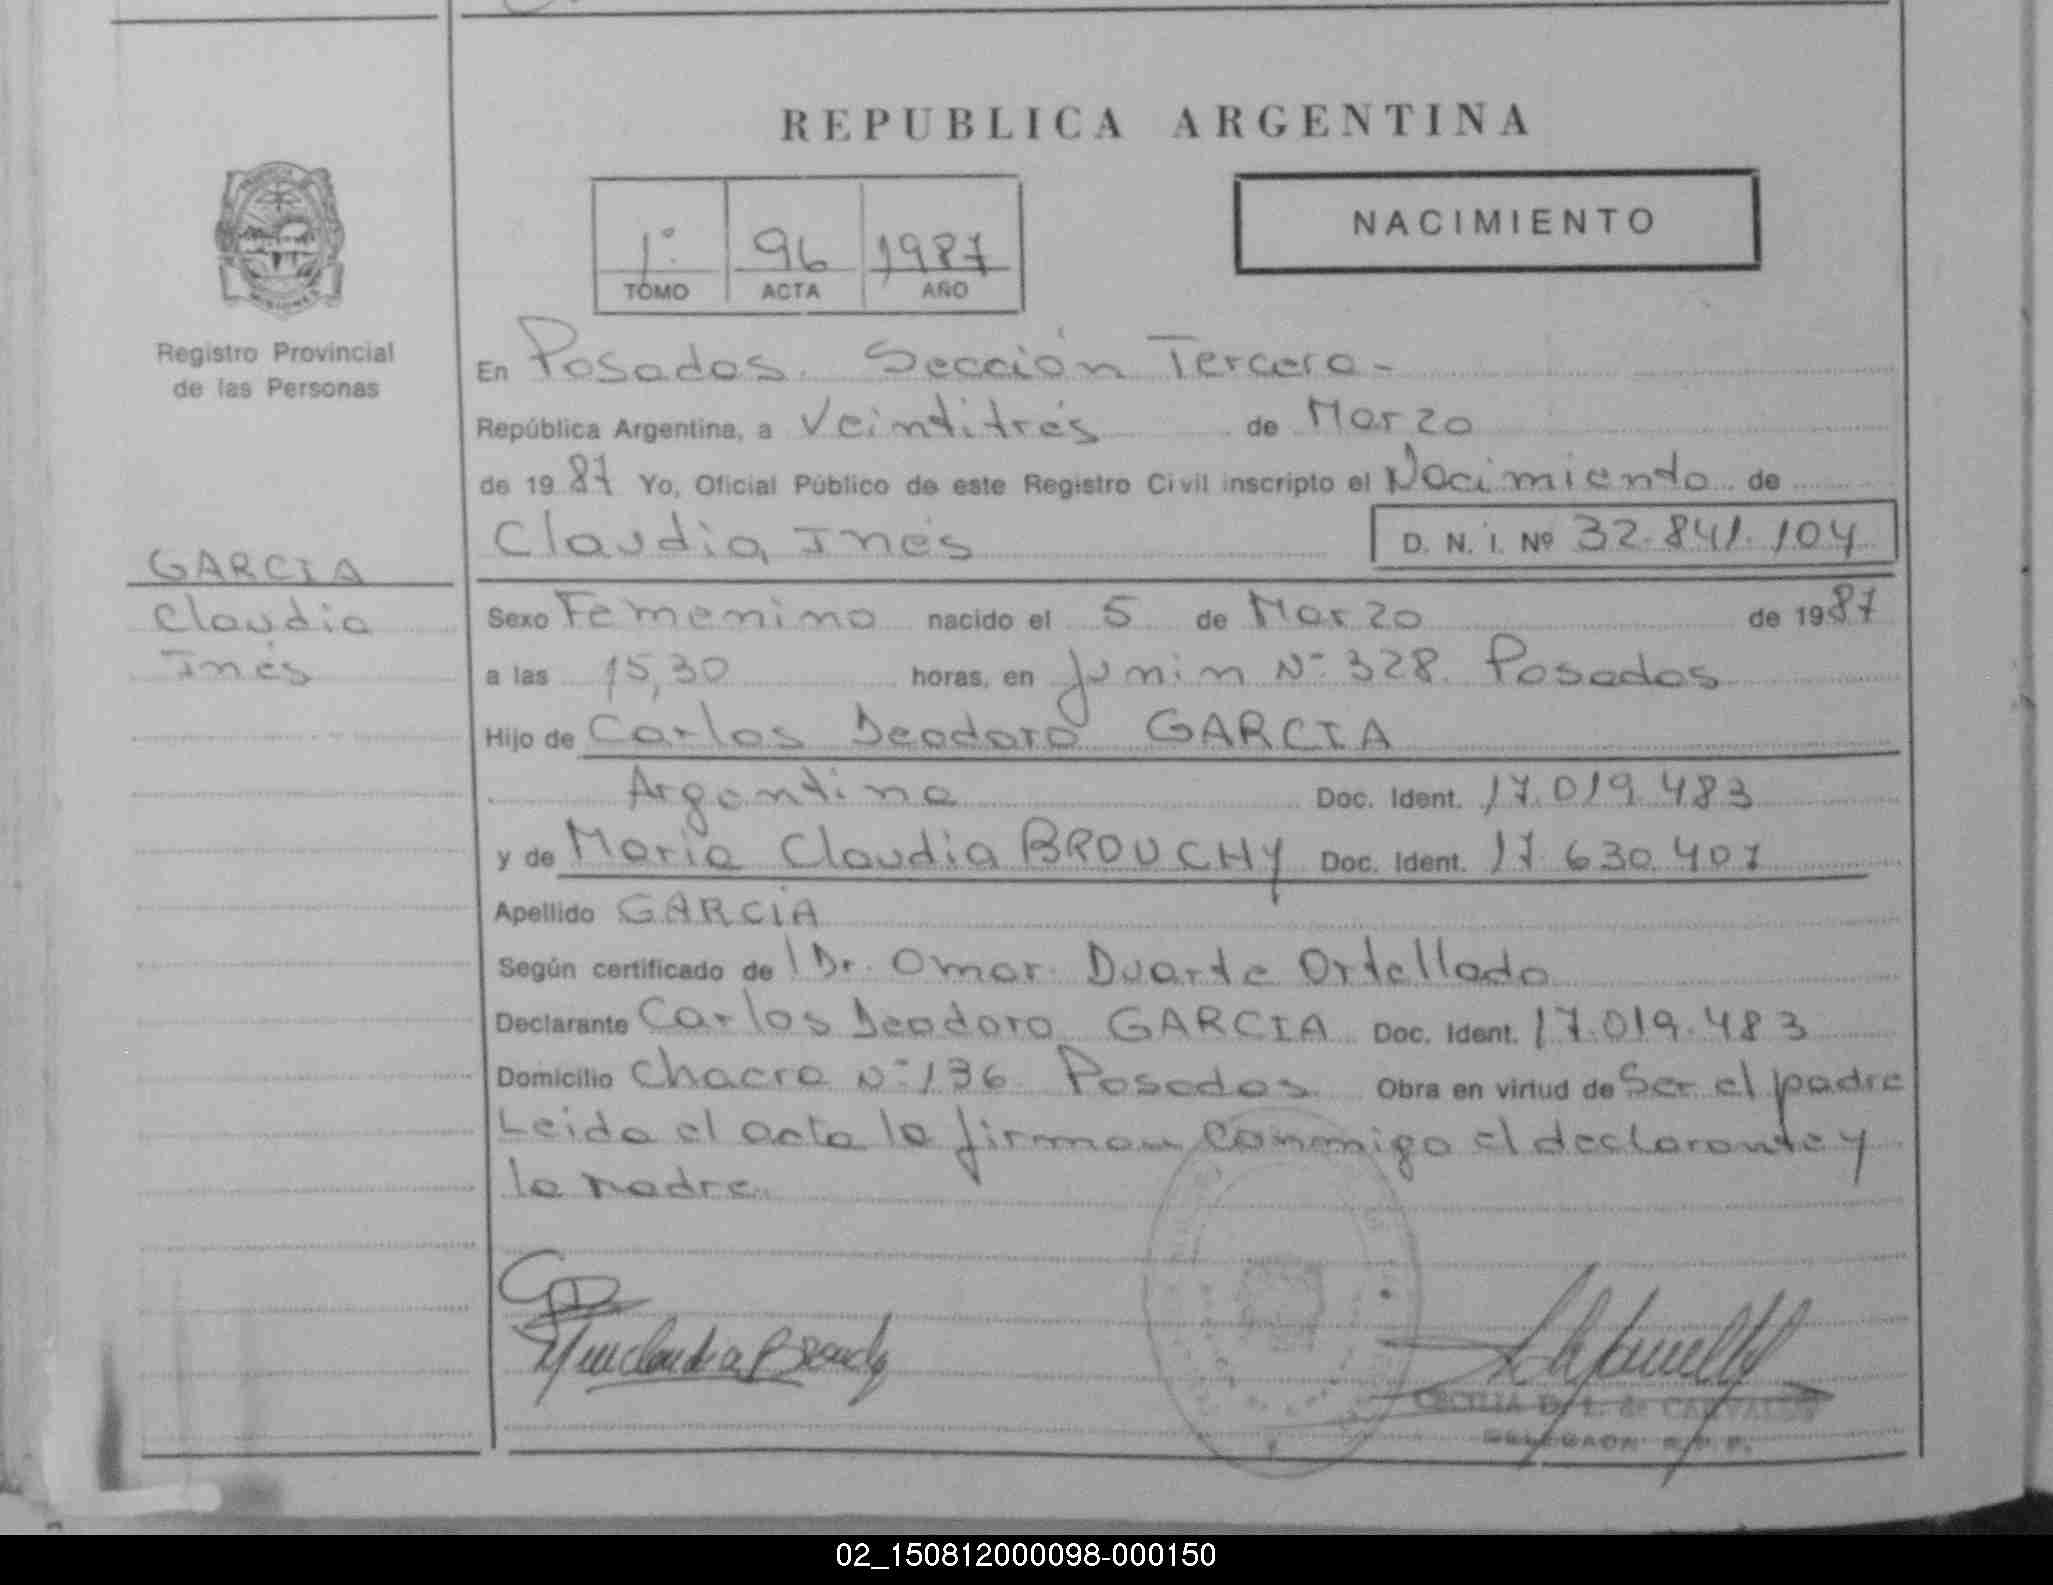 REPUBLICA ARGENTINA
NACIMIENTO
1º 96 1987
TOMO ACTA AÑO
Registro Provincial
de las Personas
GARCIA
Claudia
Inés
En Posadas. Sección Tercera-
República Argentina, a Veintitrés de Marzo
de 1987 Yo, Oficial Público de este Registro Civil inscripto el Nacimiento de
Claudia Inés D. N. I. Nº 32.841.104
Sexo Femenino nacido el 5 de Marzo de 1987
a las 15,30 horas, en Junin Nº 328. Posadas
Hijo de Carlos Deodoro GARCIA
Argentina Doc. Ident. 17.019.483
y de Maria Claudia BROUCHY Doc. Ident. 17.630.407
Apellido GARCIA
Según certificado de Dr. Omar Duarte Ortellado
Declarante Carlos Deodoro GARCIA Doc. Ident. 17.019.483
Domicilio Chacra Nº 136 Posadas Obra en virtud de Ser el padre
Leida el acta la firman conmigo el declarante y
la madre.
CECILIA D. L. de
02_150812000098-000150